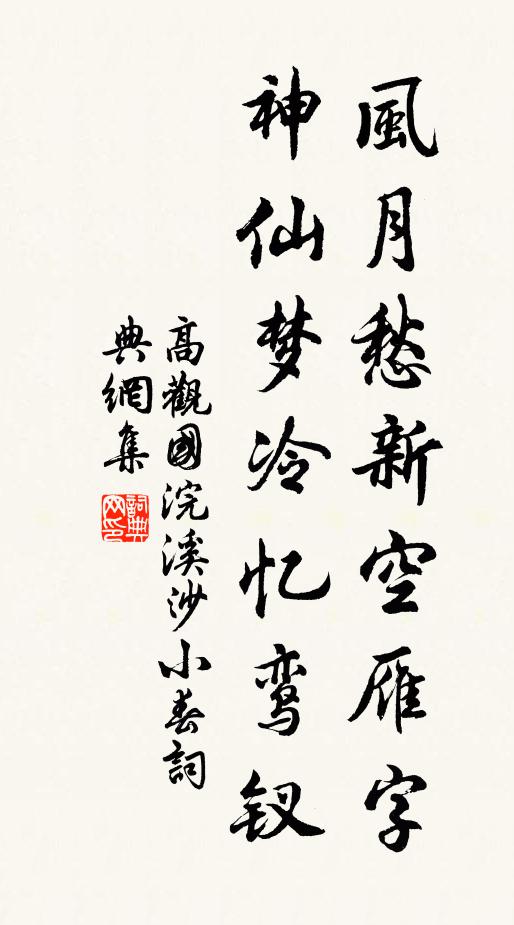 風月愁新空雁字
神仙梦冷忆鸾钗
高觀國浣溪沙小春詞
典網集
詞典網印